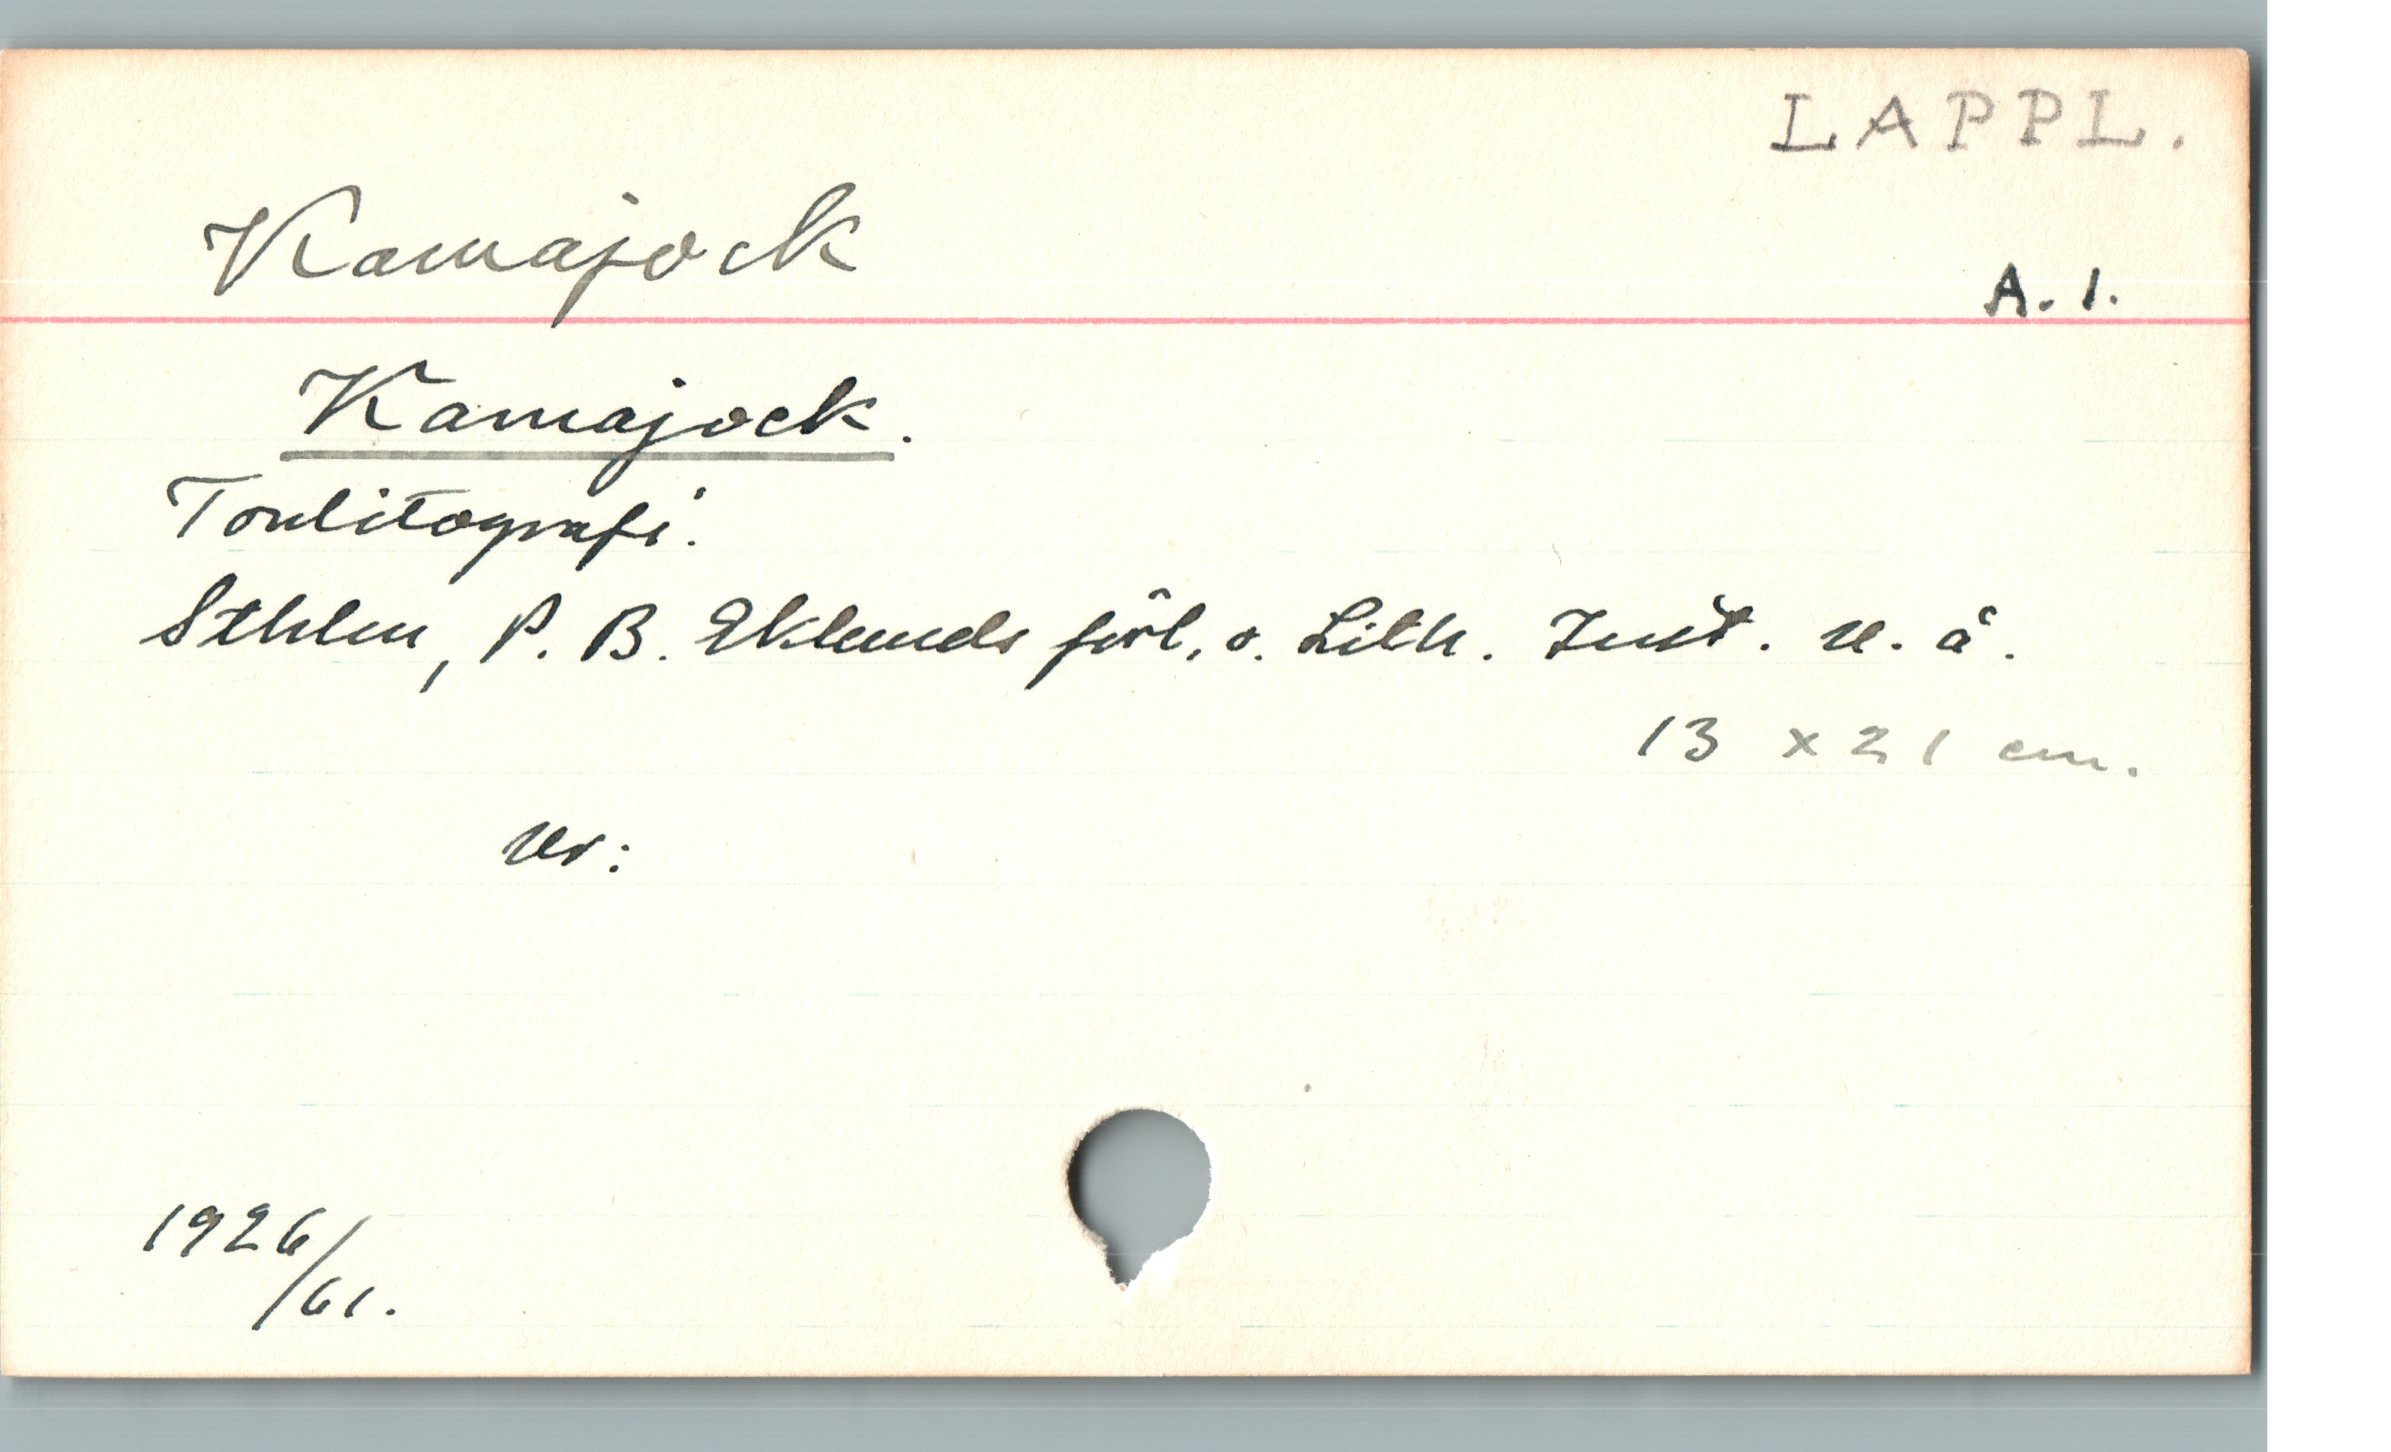 LAPPL.
Kamajock
A. 1.
Kamajock.
Tonlitografi.
Sthlm, P. B. Eklunds förl. o. Lith. Inst. u. å.
13 x 21 cm.
ur:
1926/
/61.